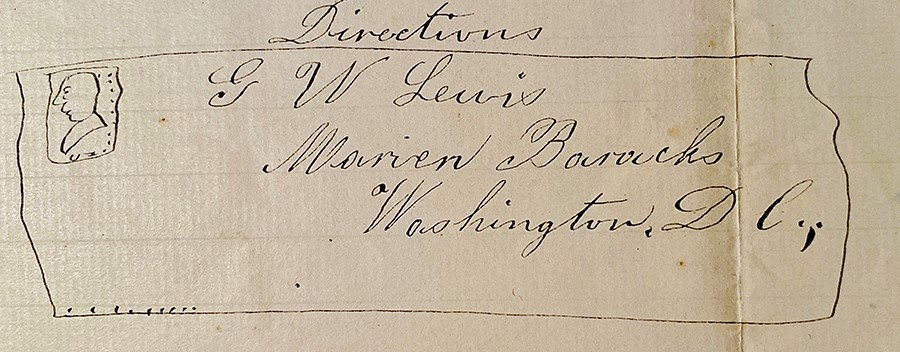 Directions
G W Lewis
Marien Baracks
Washington, D C,